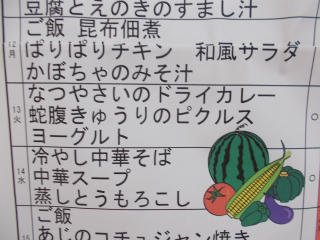 豆腐とえのきのすまし汁
ご飯 昆布佃煮
12 月
ぱりぱりチキン 和風サラダ
かぼちゃのみそ汁
なつやさいのドライカレー
13 火
蛇腹きゅうりのピクルス
ヨーグルト
冷やし中華そば
14 水
中華スープ
蒸しとうもろこし
ご飯
15
あじのコチュジャン焼き